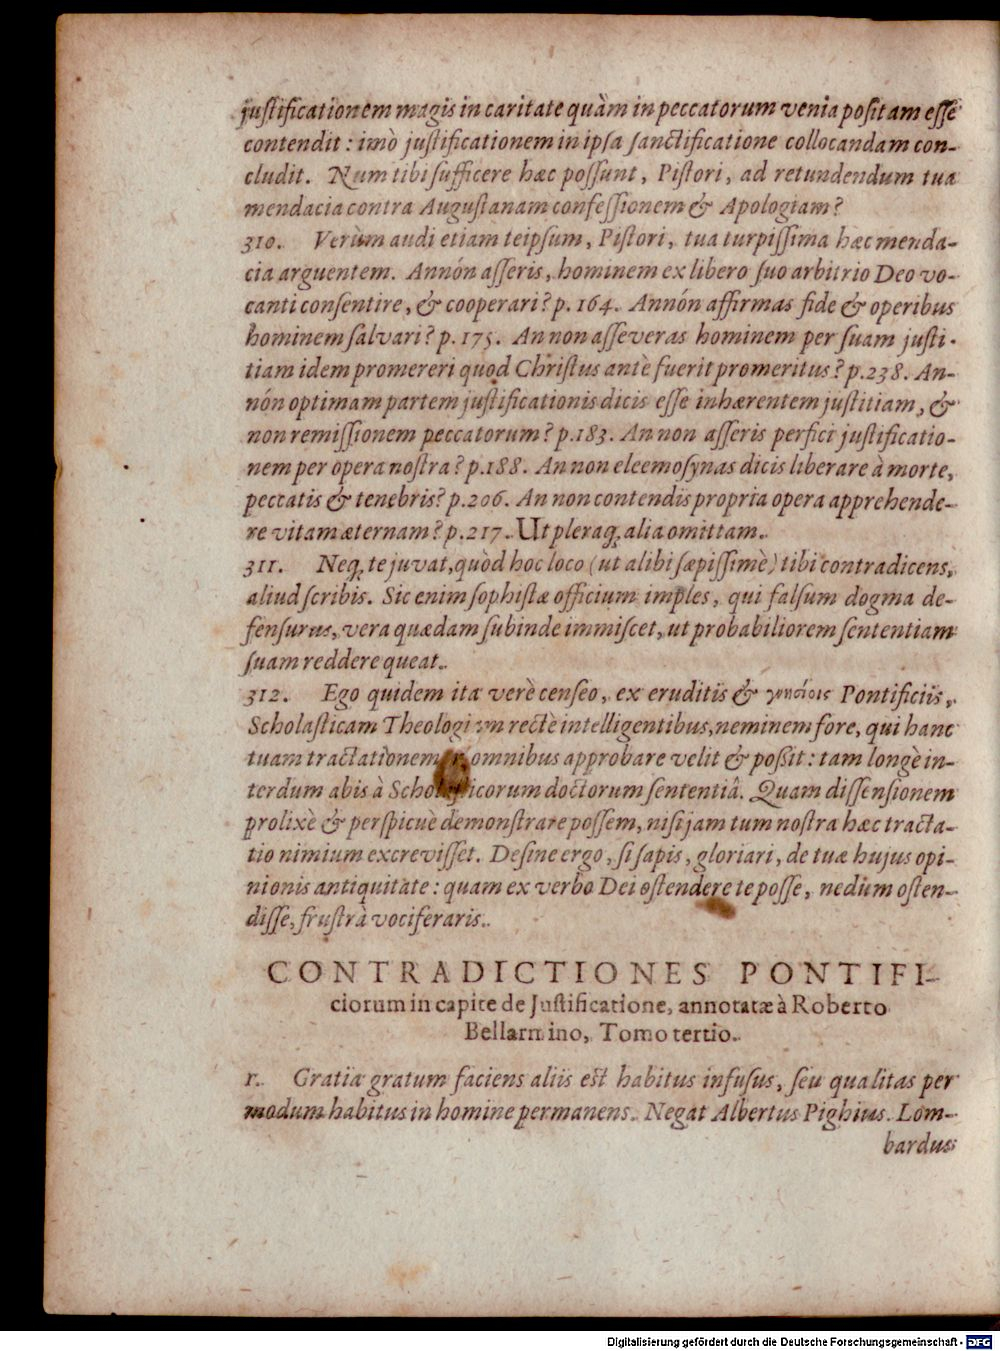 justificationem magis in caritate quàm in peccatorum venia positam esse
contendit: imò justificationem in ipsa sanctificatione collocandam con-
cludit. Num tibi sufficere hæc possunt, Pistori, ad retundendum tua
mendacia contra Augustanam confessionem & Apologiam?
310. Verùm audi etiam teipsum, Pistori, tua turpissima hæc menda-
cia arguentem. Annón asseris, hominem ex libero suo arbitrio Deo vo-
canti consentire, & cooperari? p. 164. Annón affirmas fide & operibus
hominem salvari? p. 175. An non asseveras hominem per suam justi-
tiam idem promereri quod Christus antè fuerit promeritus? p. 238. An-
nón optimam partem justificationis dicis esse inhærentem justitiam, &
non remissionem peccatorum? p. 183. An non asseris perfici justificatio-
nem per opera nostra? p. 188. An non eleemosynas dicis liberare à morte,
peccatis & tenebris? p. 206. An non contendis propria opera apprehende-
re vitam æternam? p. 217. Ut pleraq; alia omittam.
311. Neq; te juvat, quòd hoc loco (ut alibi sæpissimè) tibi contradicens,
aliud scribis. Sic enim sophistæ officium imples, qui falsum dogma de-
fensurus, vera quædam subinde immiscet, ut probabiliorem sententiam
suam reddere queat.
312. Ego quidem ita verè censeo, ex eruditis & γνησίοις Pontificiis,
Scholasticam Theologiam rectè intelligentibus, neminem fore, qui hanc
tuam tractationem omnibus approbare velit & possit: tam longè in-
terdum abis à Scholasticorum doctorum sententiâ. Quam dissensionem
prolixè & perspicuè demonstrare possem, nisi jam tum nostra hæc tracta-
tio nimium excrevisset. Desine ergo, si sapis, gloriari, de tuæ hujus opi-
nionis antiquitate: quam ex verbo Dei ostendere te posse, nedum osten-
disse, frustrà vociferaris.
CONTRADICTIONES PONTIFI-
ciorum in capite de Justificatione, annotatæ à Roberto
Bellarmino, Tomo tertio.
1. Gratia gratum faciens aliis est habitus infusus, seu qualitas per
modum habitus in homine permanens. Negat Albertus Pighius. Lom-
bardus
Digitalisierung gefördert durch die Deutsche Forschungsgemeinschaft - DFG